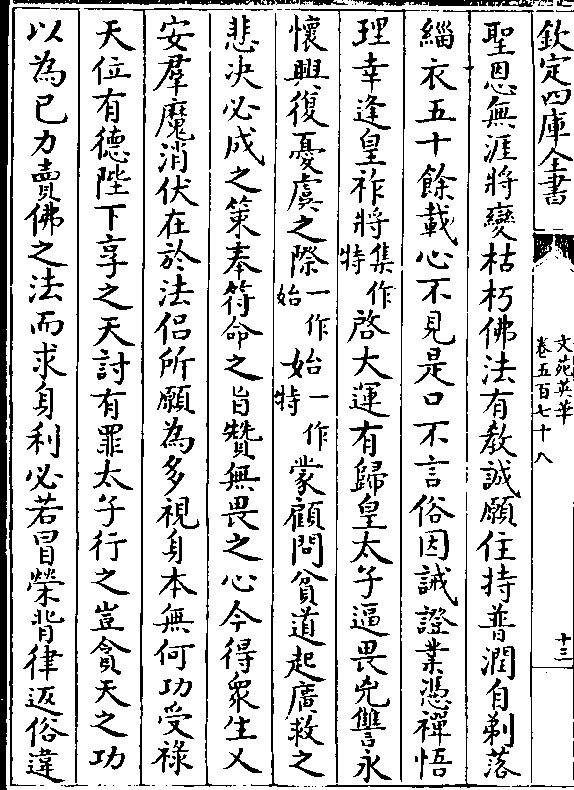 欽定四庫全書
文苑英華
卷五百七十八
十三
聖恩無涯將變枯朽佛法有教誠願住持普潤自剃落
緇衣五十餘載心不見是口不言俗因誡證業憑禪悟
理幸逢皇祚將集作特啓大運有歸皇太子逼畏兇讐永
懷興復憂虞之際一作始始一作特蒙顧問貧道起廣救之
悲決必成之策奉符命之旨贊無畏之心今得衆生乂
安羣魔消伏在於法侶所願為多視身本無何功受祿
天位有德陛下享之天討有罪太子行之豈貪天之功
以為已力賣佛之法而求身利必若冒榮背律返俗違